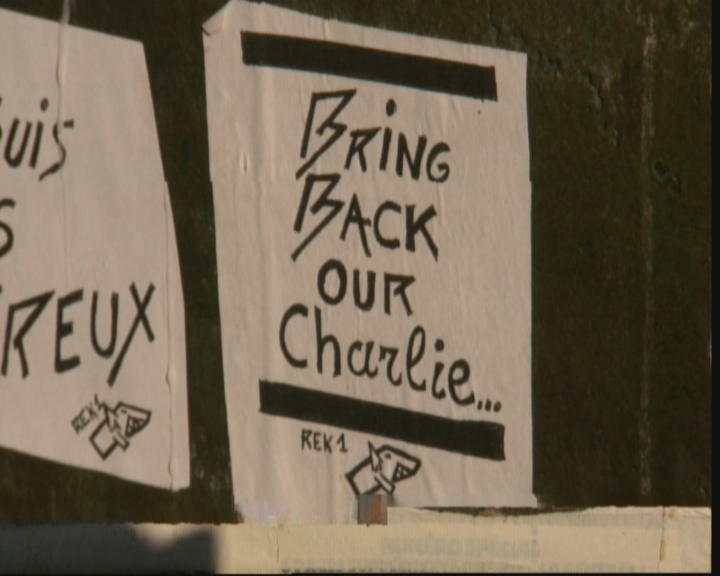 uis
S
REUX
REK1
BRING
BACK
OUR
Charlie...
REK1